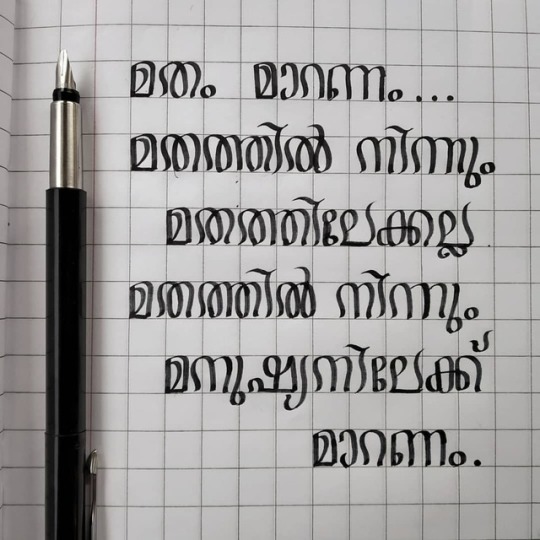 മതം മാറണം...
മതത്തിൽ നിന്നും
മതത്തിലേക്കല്ല
മതത്തിൽ നിന്നും
മനുഷ്യനിലേക്ക്
മാറണം.